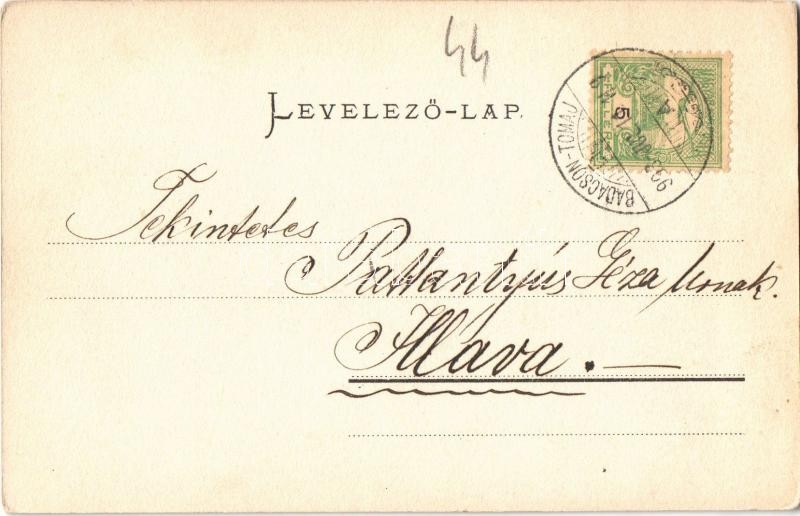 44
LEVELEZŐ-LAP.
5
BADACSON-TOMAJ
Tekintetes
Pattantyús Géza Urnak.
Illava. —